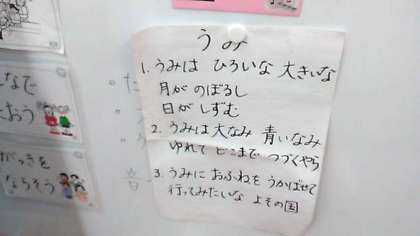 うみ
1. うみは ひろいな 大きいな
月が のぼるし
日が しずむ
2. うみは大なみ 青いなみ
ゆれて どこまで つづくやら
3. うみに おふねを うかばせて
行ってみたいな よその国
なで
おう
がっきを
ならそう